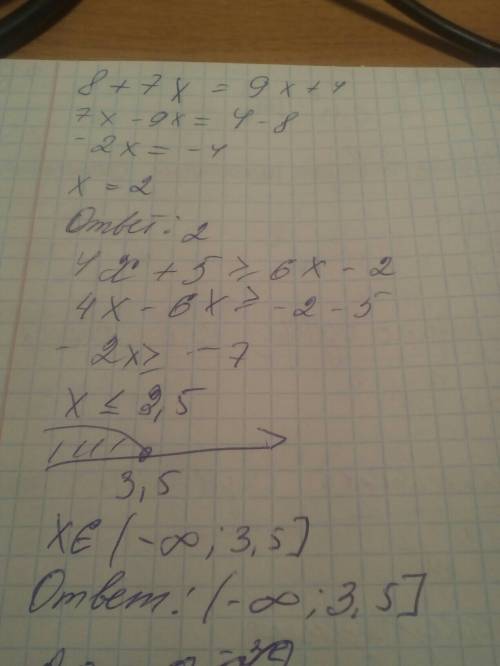 8 + 7x = 9x + 4
7x - 9x = 4 - 8
-2x = -4
x = 2
Ответ: 2
4x + 5 ≥ 6x - 2
4x - 6x ≥ -2 - 5
-2x ≥ -7
x ≤ 2,5
3,5
x ∈ (-∞; 3,5]
Ответ: (-∞; 3,5]